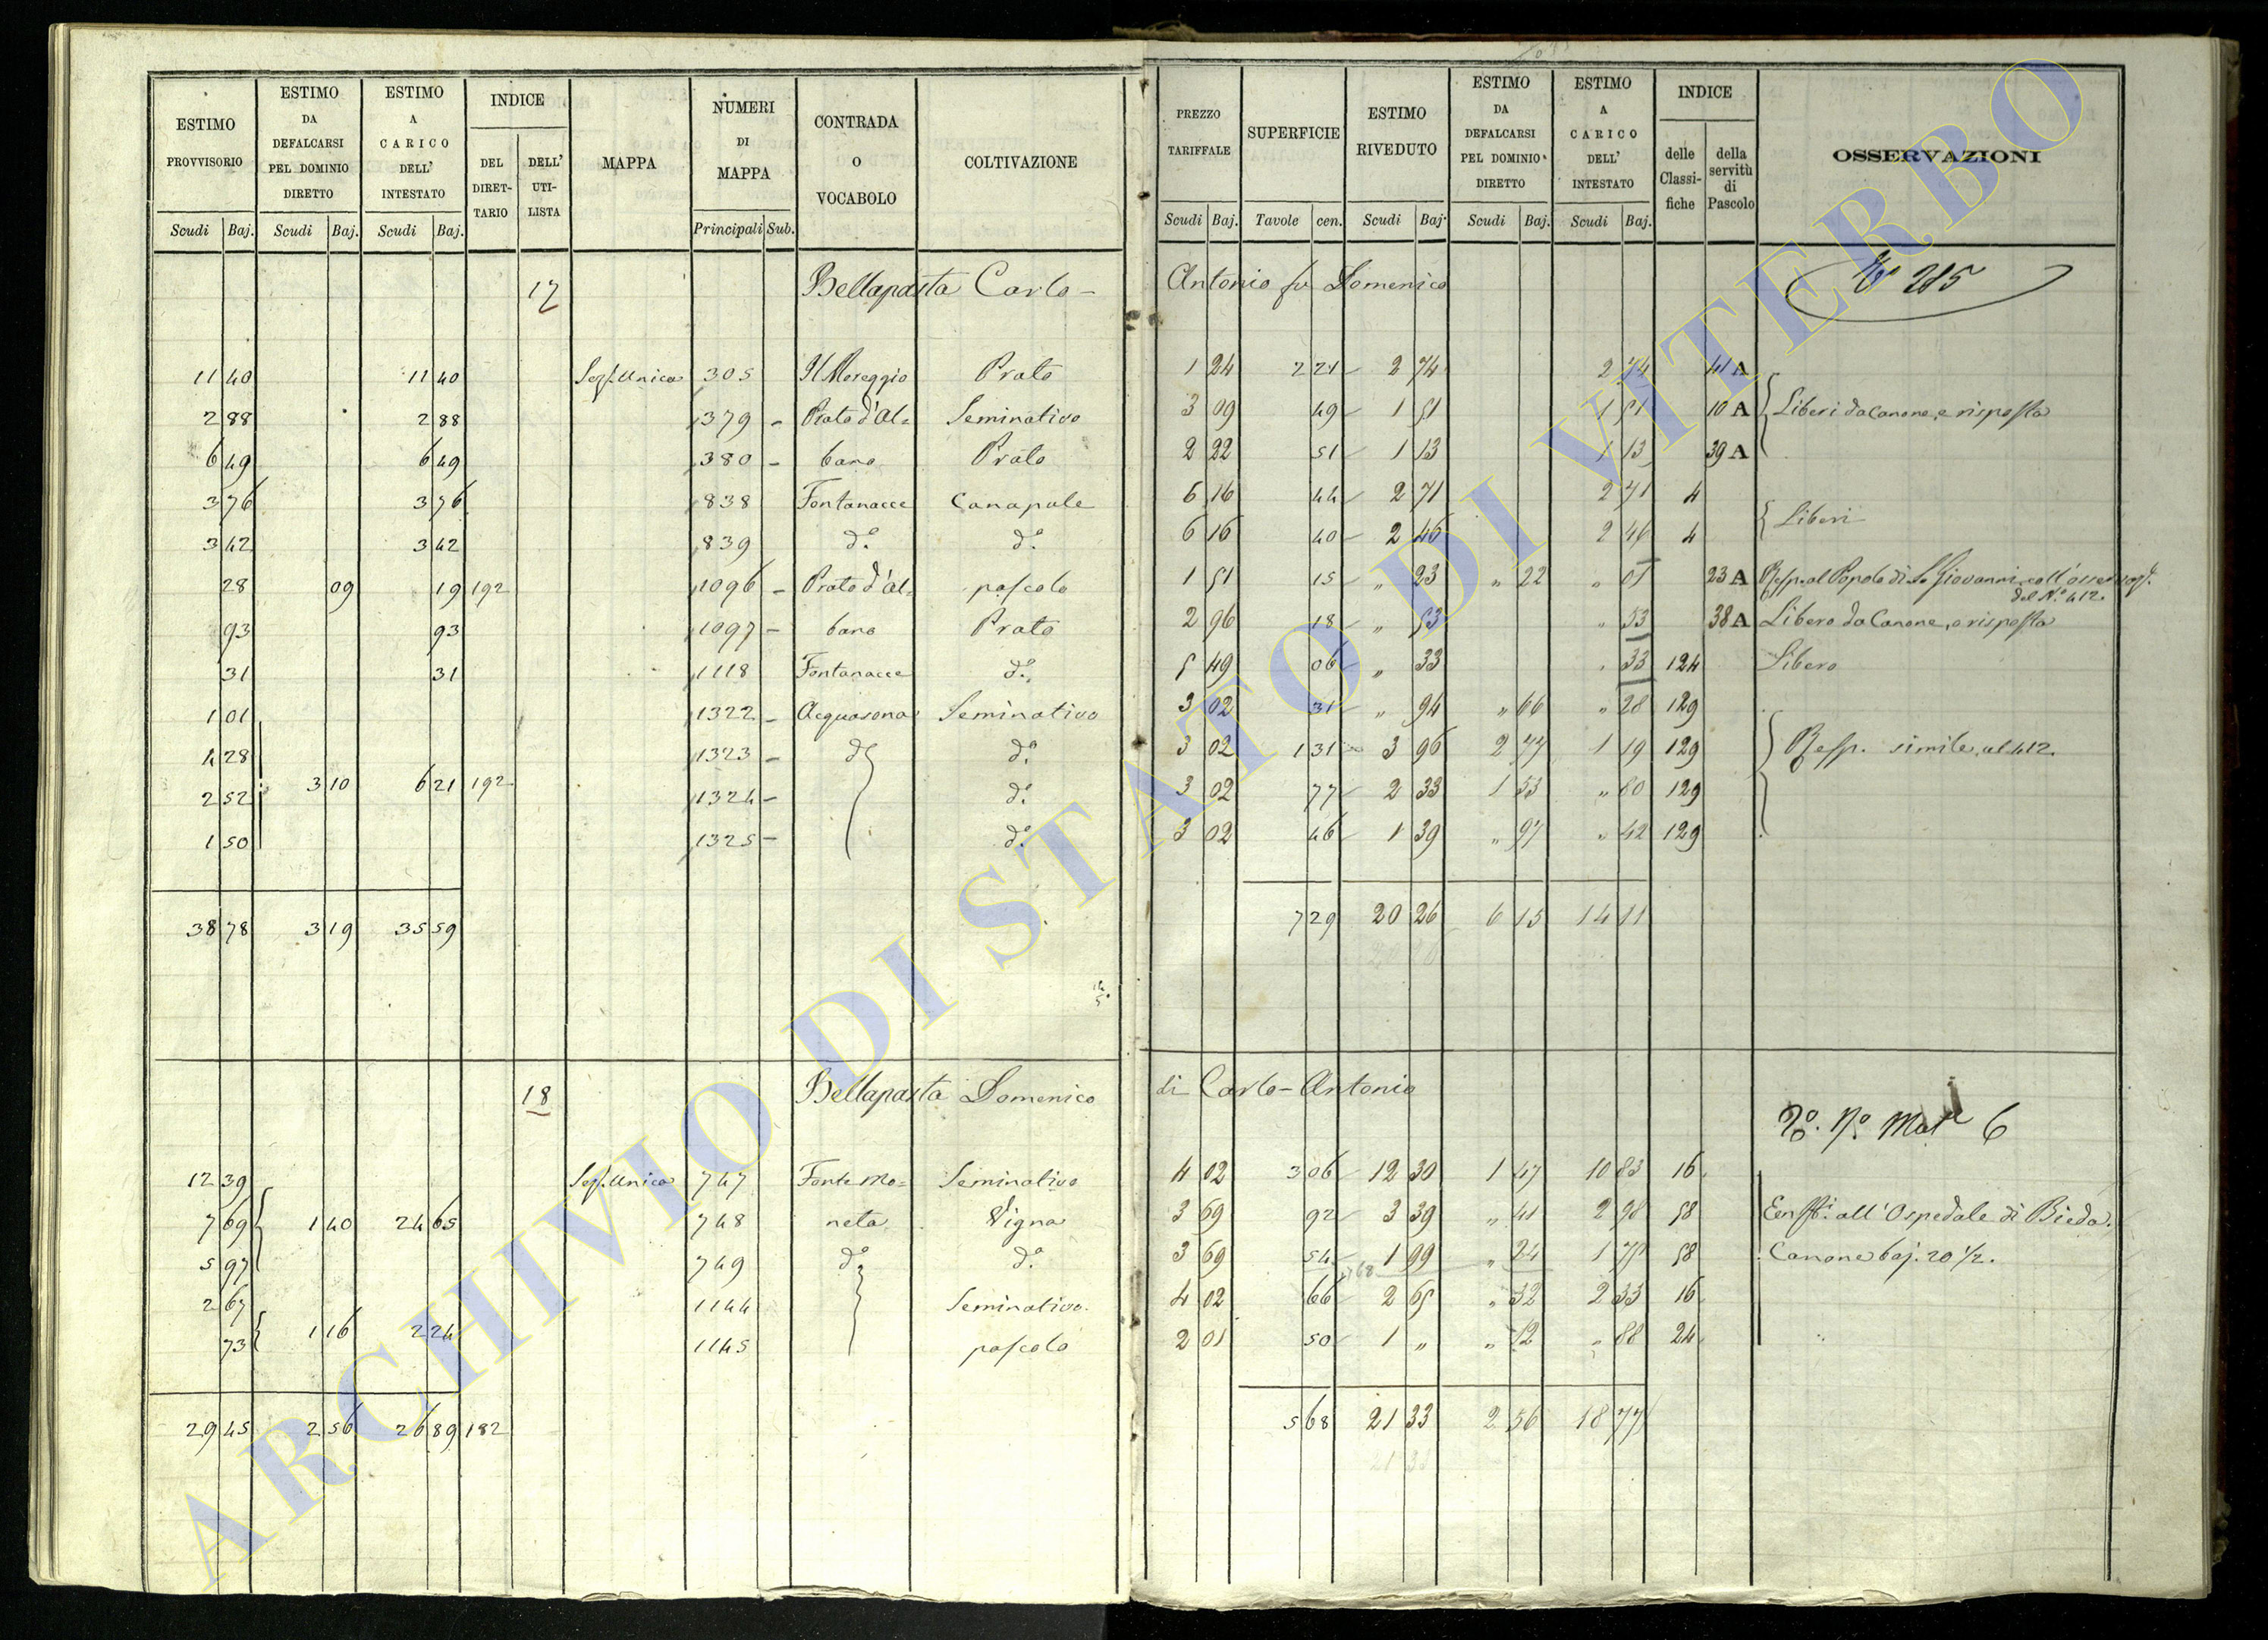 ESTIMO PROVVISORIO | ESTIMO DA DEFALCARSI PEL DOMINIO DIRETTO | ESTIMO A CARICO DELL' INTESTATO | INDICE DEL DIRET-TARIO | DELL' UTI-LISTA | MAPPA | NUMERI DI MAPPA | CONTRADA O VOCABOLO | COLTIVAZIONE | PREZZO TARIFFALE | SUPERFICIE | ESTIMO RIVEDUTO | ESTIMO DA DEFALCARSI PEL DOMINIO DIRETTO | ESTIMO A CARICO DELL' INTESTATO | INDICE delle Classi-fiche | della servitù di Pascolo | OSSERVAZIONI
Scudi Baj. | Scudi Baj. | Scudi Baj. | Principali Sub. | Scudi Baj. | Tavole cen. | Scudi Baj. | Scudi Baj. | Scudi Baj.
17 Bellapasta Carlo - Antonio fu Domenico
11 40 | 11 40 | Sez. Unica | 305 | Prato | 1 24 | 2 21 | 2 74 | 2 74 | 41 A
2 88 | 2 88 | 379 - | Prato d'Al= | Seminativo | 3 09 | 49 | 1 51 | 1 51 | 10 A | Liberi da Canone, e risposta
6 49 | 6 49 | 380 - | bano | Prato | 2 22 | 51 | 1 13 | 1 13 | 39 A
3 76 | 3 76 | 838 | Fontanacce | Canapule | 6 16 | 44 | 2 71 | 2 71 | 4
3 42 | 3 42 | 839 | d.o | d.o | 6 16 | 40 | 2 46 | 2 46 | 4 | Liberi
28 | 09 | 19 | 192 | 1096 - | Prato d'Al= | pascolo | 1 51 | 15 | " 23 | " 22 | " 01 | 23 A | Risp. al Popolo di S. Giovanni coll'osservaz.
del N.o 412.
93 | 93 | 1097 - | bano | Prato | 2 96 | 18 | " 53 | " 53 | 38 A | Libero da Canone, e risposta
31 | 31 | 1118 | Fontanacce | d.o | 5 49 | 06 | " 33 | " 33 | 124 | Libero
1 01 | 1322 - | Acquasona | Seminativo | 3 02 | 31 | " 94 | " 66 | " 28 | 129
4 28 | 1323 - | d.o | d.o | 3 02 | 1 31 | 3 96 | 2 77 | 1 19 | 129 | Risp. simile al 412.
2 52 | 3 10 | 6 21 | 192 | 1324 - | d.o | 3 02 | 77 | 2 33 | 1 53 | " 80 | 129
1 50 | 1325 - | d.o | 3 02 | 46 | 1 39 | " 97 | " 42 | 129
38 78 | 3 19 | 35 59 | 7 29 | 20 26 | 6 15 | 14 11
18 Bellapasta Domenico di Carlo - Antonio
12 39 | Sez. Unica | 747 | Fonte Mo= | Seminativo | 4 02 | 3 06 | 12 30 | 1 47 | 10 83 | 16
7 69 | 1 40 | 24 65 | 748 | neta | Vigna | 3 69 | 92 | 3 39 | " 41 | 2 98 | 58 | all'Ospedale di Bieda.
5 97 | 749 | d.o | d.o | 3 69 | 54 | 1 99 | " 24 | 1 75 | 58 | Canone baj. 20 1/2.
2 67 | 1144 | Seminativo. | 4 02 | 66 | 2 65 | " 32 | 2 33 | 16
73 | 1 16 | 2 24 | 1145 | pascolo | 2 01 | 50 | 1 " | " 12 | " 88 | 24
29 45 | 2 56 | 26 89 | 182 | 5 68 | 21 33 | 2 56 | 18 77
ARCHIVIO DI STATO DI VITERBO